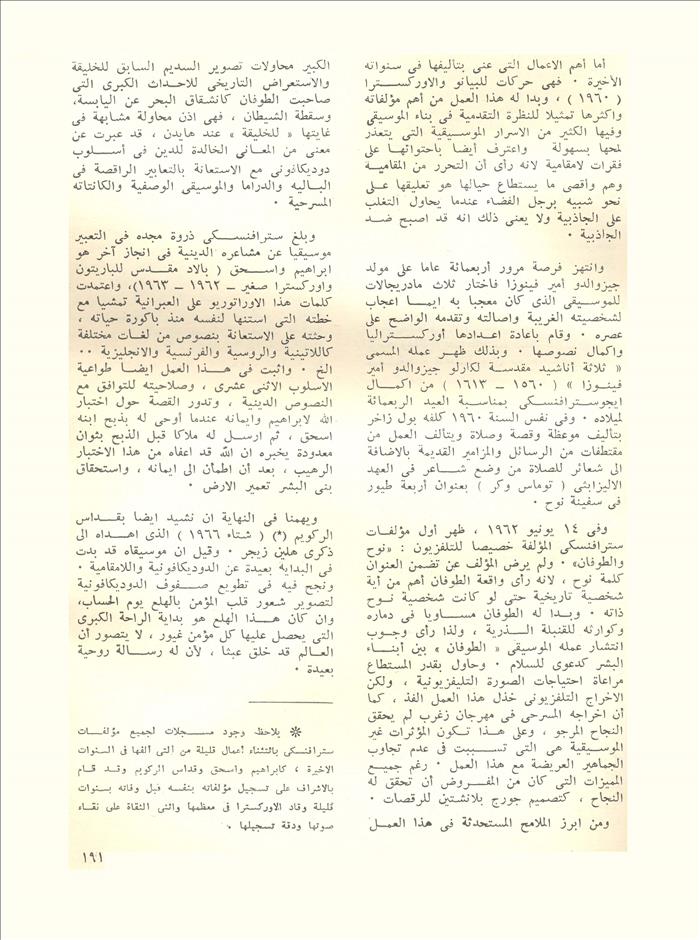 أما أهم الاعمال التى عنى بتأليفها فى سنواته
الأخيرة ٠ فهى حركات للبيانو والاوركسترا
( ١٩٦٠ ) ، وبدا له هذا العمل من أهم مؤلفاته
واكثرها تمثيلا للنظرة التقدمية فى بناء الموسيقى
وفيها الكثير من الاسرار الموسيقية التى يتعذر
لمحها بسهولة واعترف أيضا باحتوائها على
فقرات لامقامية لانه رأى أن التحرر من المقامية
وهم واقصى ما يستطاع حيالها هو تعليقها على
نحو شبيه برجل الفضاء عندما يحاول التغلب
على الجاذبية ولا يعنى ذلك انه قد اصبح ضد
الجاذبية ٠
وانتهز فرصة مرور أربعمائة عاما على مولد
جيزوالدو أمير فينوزا فاختار ثلاث مادريجالات
للموسيقى الذى كان معجبا به ايما اعجاب
لشخصيته الغريبة واصالته وتقدمه الواضح على
عصره ٠ وقام باعادة اعدادها أوركستراليا
واكمال نصوصها ٠ وبذلك ظهر عمله المسمى
« ثلاثة أناشيد مقدسة لكارلو جيزوالدو أمير
فينوزا » ( ١٥٦٠ ــ ١٦١٣ ) من اكمال
ايجوسترافنسكى بمناسبة العيد الربعمائة
لميلاده ٠ وفى نفس السنة ١٩٦٠ كلفه بول زاخر
بتأليف موعظة وقصة وصلاة ويتألف العمل من
مقتطفات من الرسائل والمزامير القديمة بالاضافة
الى شعائر للصلاة من وضع شاعر فى العهد
الاليزابثى ( توماس وكر ) بعنوان أربعة طيور
فى سفينة نوح ٠
وفى ١٤ يونيو ١٩٦٢ ، ظهر أول مؤلفات
سترافنسكى المؤلفة خصيصا للتلفزيون : «نوح
والطوفان» ٠ ولم يرض المؤلف عن تضمن العنوان
كلمة نوح ، لانه رأى واقعة الطوفان أهم من أية
شخصية تاريخية حتى لو كانت شخصية نوح
ذاته ٠ وبدا له الطوفان مساويا فى دماره
وكوارثه للقنبلة الذرية ، ولذا رأى وجوب
انتشار عمله الموسيقى « الطوفان » بين أبناء
البشر كدعوى للسلام ٠ وحاول بقدر المستطاع
مراعاة احتياجات الصورة التليفزيونية ، ولكن
الاخراج التلفزيونى خذل هذا العمل الفذ ، كما
أن اخراجه المسرحى فى مهرجان زغرب لم يحقق
النجاح المرجو ، وعلى هذا تكون المؤثرات غير
الموسيقية هى التى تسببت فى عدم تجاوب
الجماهير العريضة مع هذا العمل ٠ رغم جميع
الميزات التى كان من المفروض أن تحقق له
النجاح ، كتصميم جورج بلانشتين للرقصات ٠
ومن ابرز الملامح المستحدثة فى هذا العمل
الكبير محاولات تصوير السديم السابق للخليقة
والاستعراض التاريخى للاحداث الكبرى التى
صاحبت الطوفان كانشقاق البحر عن اليابسة،
وسقطة الشيطان ، فهى اذن محاولة مشابهة فى
غايتها « للخليقة » عند هايدن ، قد عبرت عن
معنى من المعانى الخالدة للدين فى أسلوب
دوديكافونى مع الاستعانة بالتعابير الراقصة فى
الباليه والدراما والموسيقى الوصفية والكانتاته
المسرحية ٠
وبلغ سترافنسكى ذروة مجده فى التعبير
موسيقيا عن مشاعره الدينية فى انجاز آخر هو
ابراهيم واسحق ( بالاد مقدس للباريتون
واوركسترا صغير ــ ١٩٦٢ ــ ١٩٦٣)، واعتمدت
كلمات هذا الاوراتوريو على العبرانية تمشيا مع
خطته التى استنها لنفسه منذ باكورة حياته ،
وحثته على الاستعانة بنصوص من لغات مختلفة
كاللاتينية والروسية والفرنسية والانجليزية ٠٠
الخ ٠ واثبت فى هذا العمل ايضا طواعية
الأسلوب الاثنى عشرى ، وصلاحيته للتوافق مع
النصوص الدينية ، وتدور القصة حول اختبار
الله لابراهيم وايمانه عندما أوحى له بذبح ابنه
اسحق ، ثم ارسل له ملاكا قبل الذبح بثوان
معدودة يخبره ان الله قد اعفاه من هذا الاختبار
الرهيب ، بعد أن اطمأن الى ايمانه ، واستحقاق
بنى البشر تعمير الارض ٠
ويهمنا فى النهاية ان نشيد ايضا بقداس
الركويم (*) ( شتاء ١٩٦٦ ) الذى اهداه الى
ذكرى هلين زيجر ٠ وقيل ان موسيقاه قد بدت
فى البداية بعيدة عن الدوديكافونية واللامقامية ٠
ونجح فيه فى تطويع صفوف الدوديكافونية
لتصوير شعور قلب المؤمن بالهلع يوم الحساب،
وان كان هذا الهلع هو بداية الراحة الكبرى
التى يحصل عليها كل مؤمن غيور ، لا يتصور أن
العالم قد خلق عبثا ، لأن له رسالة روحية
بعيدة ٠
* يلاحظ وجود مسجلات لجميع مؤلفات
سترافنسكى باستثناء أعمال قليلة من التى ألفها فى السنوات
الاخيرة ، كابراهيم واسحق وقداس الركويم وقد قام
بالاشراف على تسجيل مؤلفاته بنفسه قبل وفاته بسنوات
قليلة وقاد الاوركسترا فى معظمها واثنى الثقاة على نقاء
صوتها ودقة تسجيلها ٠
١٩١